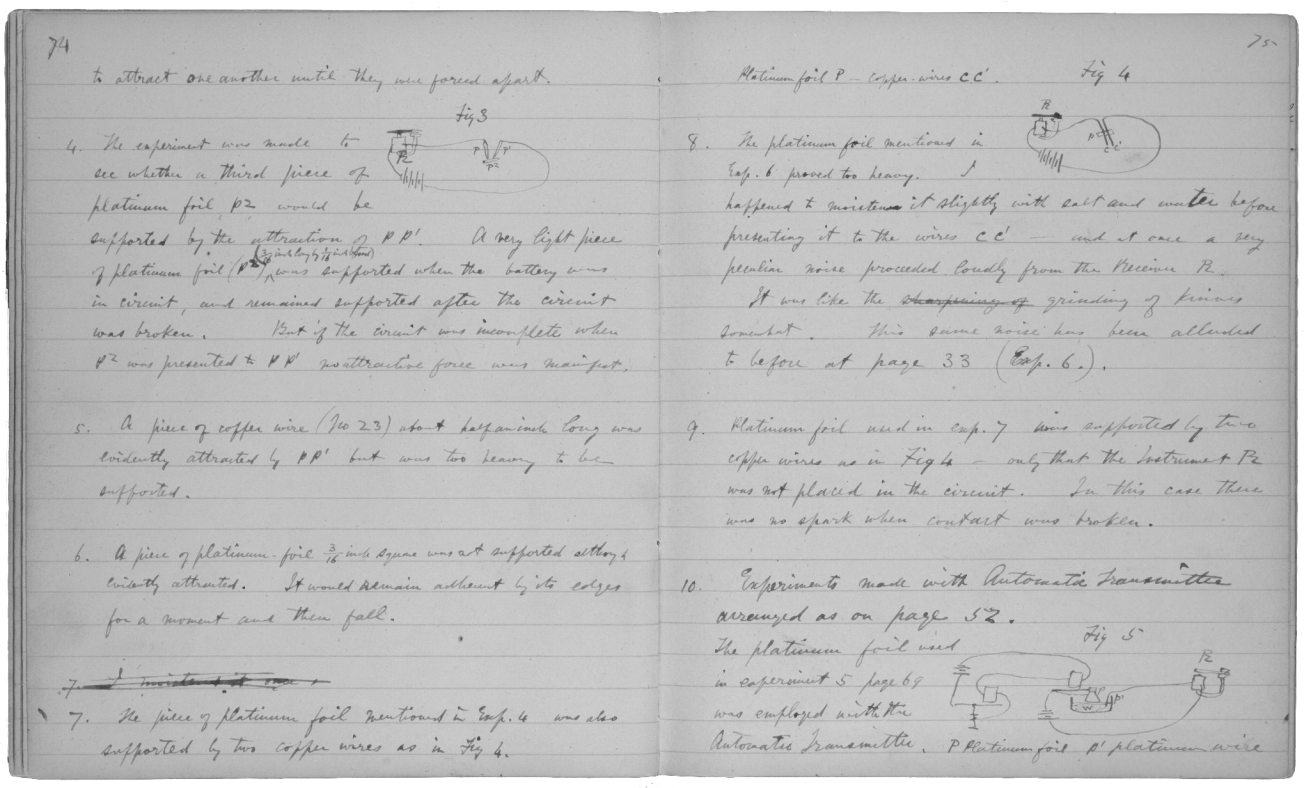 74
to attract one another until they were forced apart.
Fig 3
4. The experiment was made to
see whether a third piece of
platinum foil, P2 would be
supported by the attraction of P P'. A very light piece
of platinum foil (P2) was supported when the battery was
in circuit, and remained supported after the circuit
was broken. But if the circuit was incomplete when
P2 was presented to P P' no attractive force was manifest.
5. A piece of copper wire (No 23) about half an inch long was
evidently attracted by P P' but was too heavy to be
supported.
6. A piece of platinum-foil 3/16 inch square was not supported although
evidently attracted. It would remain adherent by its edges
for a moment and then fall.
7. I moistened it once
7. The piece of platinum foil mentioned in Exp. 4 was also
supported by two copper wires as in Fig 4.
75
Platinum foil P — copper-wires C C'. Fig 4
8. The platinum foil mentioned in
Exp. 6 proved too heavy. I
happened to moisten it slightly with salt and water before
presenting it to the wires C C' — and at once a very
peculiar noise proceeded loudly from the Receiver R.
It was like the sharpening of grinding of knives
somewhat. This same noise has been alluded
to before at page 33 (Exp. 6.).
9. Platinum foil used in exp. 7 was supported by two
copper wires as in Fig 4 — only that the Instrument R
was not placed in the circuit. In this case there
was no spark when contact was broken.
10. Experiments made with Automatic Transmitter
arranged as on page 52.
Fig 5
The platinum foil used
in experiment 5 page 69
was employed with the
Automatic Transmitter. P Platinum foil P' platinum wire